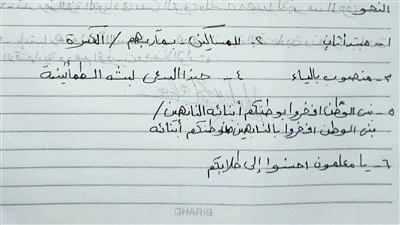 النحو
١- مبتدأ ثان ٢- للمساكين بمآربهم / الكثيرة
٣- منصوب بالياء ٤- حبذا السعى لبث الطمأنينة
٥- بنى الوطن افخروا بوطنكم أبنائه النابهين /
بنى الوطن افخروا بالنابهين وطنكم أبنائه
٦- يا معلمون احسنوا إلى طلابكم
GHARIB